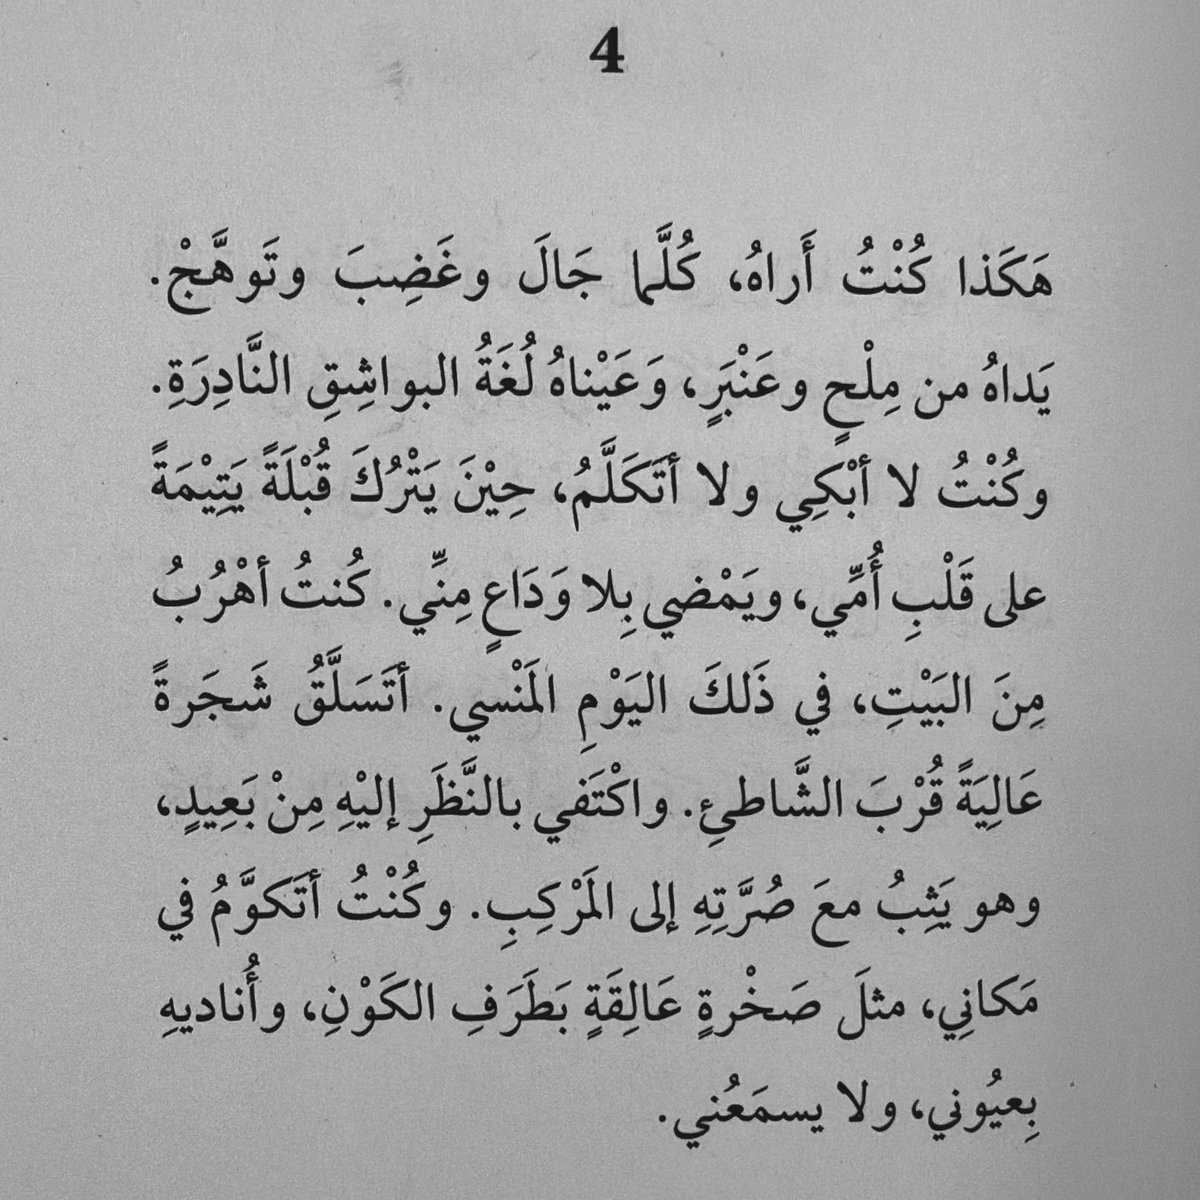 4
هَكَذا كُنْتُ أَراهُ، كُلَّما جَالَ وغَضِبَ وتَوهَّجْ.
يَداهُ من مِلْحٍ وعَنْبَرٍ، وَعَيْناهُ لُغَةُ البواشِقِ النَّادِرَةِ.
وكُنْتُ لا أبْكِي ولا أتَكَلَّمُ، حِيْنَ يَتْرُكَ قُبْلَةً يَتِيْمَةً
على قَلْبِ أُمِّي، ويَمْضي بِلا وَدَاعٍ مِنِّي. كُنتُ أهْرُبُ
مِنَ البَيْتِ، في ذَلكَ اليَوْمِ المَنْسي. أتَسَلَّقُ شَجَرةً
عَالِيَةً قُرْبَ الشَّاطئِ. واكْتَفي بالنَّظَرِ إليْهِ مِنْ بَعِيدٍ،
وهو يَثِبُ معَ صُرَّتِهِ إلى المَرْكِبِ. وكُنْتُ أتَكوَّمُ في
مَكانِي، مثلَ صَخْرةٍ عَالِقَةٍ بَطَرَفِ الكَوْنِ، وأُناديهِ
بِعيُوني، ولا يسمَعُني.